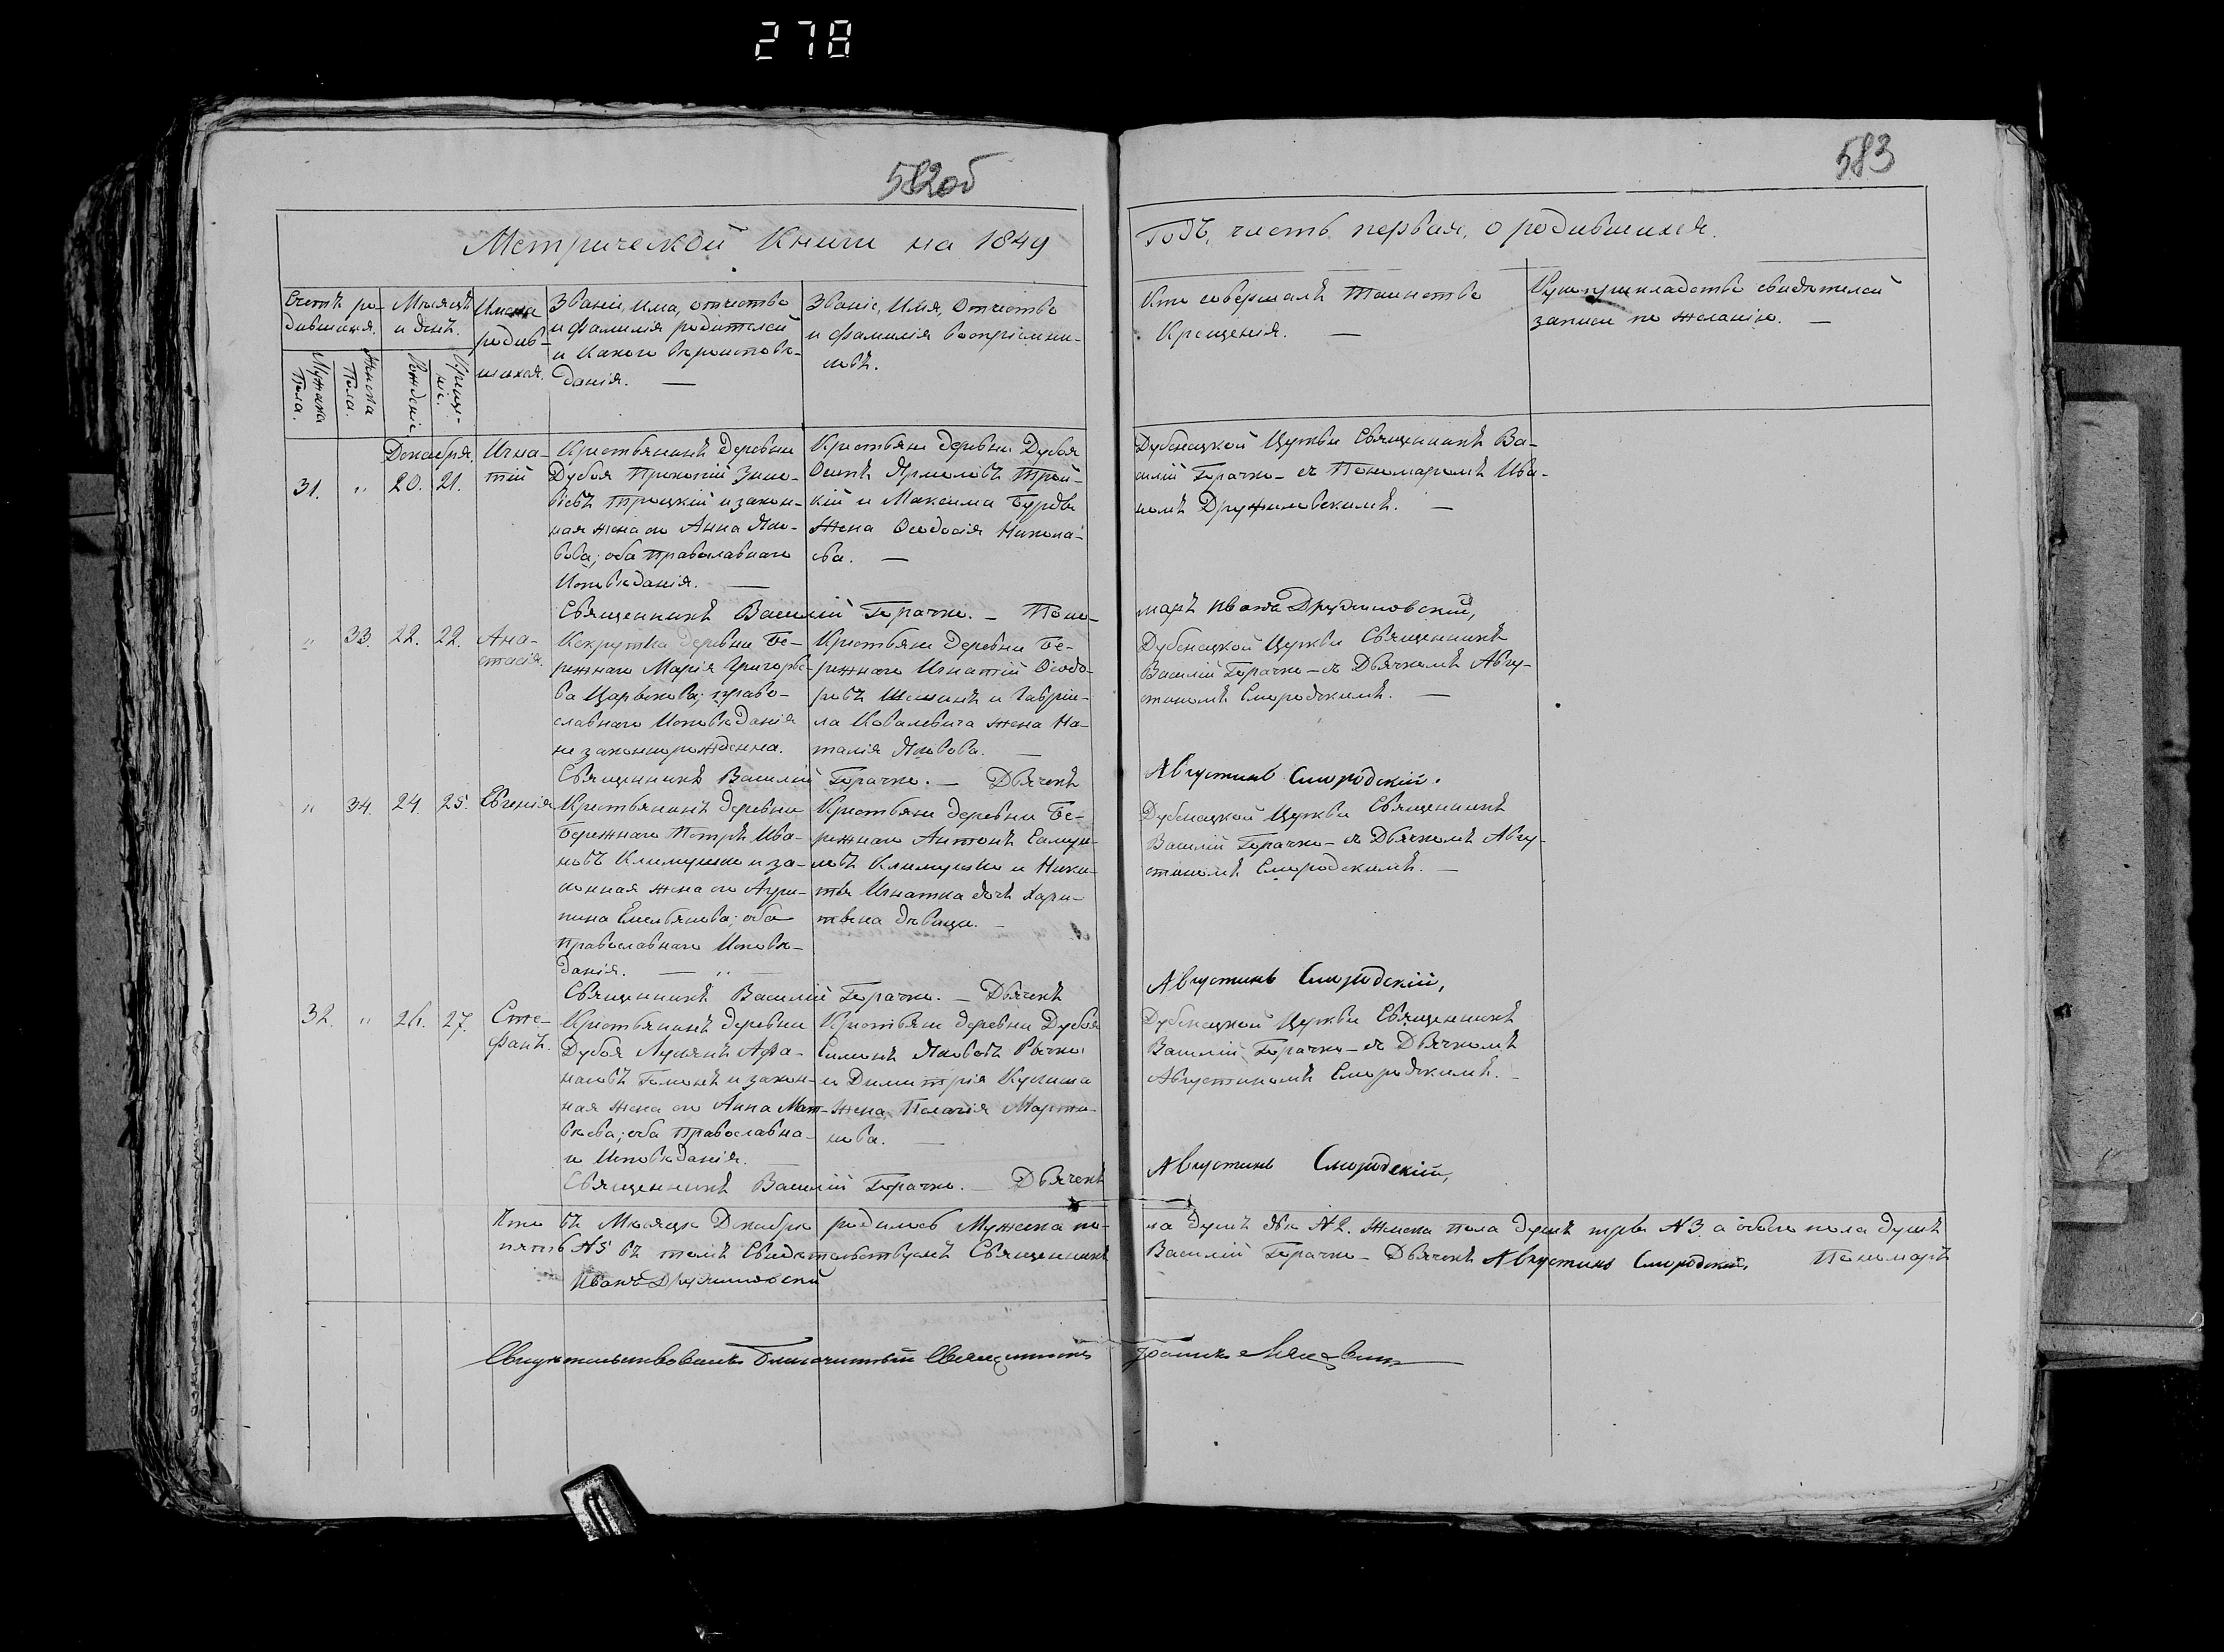 278
582об
583
Метрической Книги на 1849
Годъ, часть первая, о родившихся.
Счетъ ро-
дившихся.
Мужеска
Пола.
Женска
Пола.
Мѣсяцъ
и день.
Рожденіе
Креще-
ніе.
Имена
родив-
шихся.
Званіе, имя, отчество
и фамилія родителей
и какого вѣроисповѣ-
данія. —
Званіе, Имя, Отчество
и фамилія воспріемни-
ковъ.
Кто совершалъ Таинство
Крещенія. —
Рукоприкладство свидѣтелей
записи по желанію. —
Декабря
31. " 20. 21.
Игна-
тій
Крестьянинъ деревни
Дубоя Прокопій Зино-
віевъ Троцкій и закон-
ная жена его Анна Яко-
вова; оба православнаго
Исповѣданія. —
Крестьяне деревни Дубоя
Осипъ Ярмоловъ Трой-
кій и Максима Бурдъ
жена Ѳеодосія Никола-
ева. —
Дубенецкой Церкви Священникъ Ва-
силій Горачко — съ Пономаремъ Ива-
номъ Дружиловскимъ. —
Священникъ Василій Горачко. — Поно-
марь Иванъ Дружиловский,
" 33. 22. 22.
Ана-
стасія.
Рекрутка деревни Бе-
режнаго Марія Григорье-
ва Царькова; право-
славнаго Исповѣданія
незаконнорожденна.
Крестьяне деревни Бе-
режнаго Игнатій Ѳеодо-
ровъ и Гаврі-
ла Ковалевича жена На-
талія Яковова. —
Дубенецкой Церкви Священникъ
Василій Горачко — съ Дьячкомъ Авгу-
стиномъ Смородскимъ. —
Священникъ Василій Горачко. — Дьячекъ
Августинъ Смородскій.
" 34. 24. 25. Евгенія
Крестьянинъ деревни
Бережнаго Петръ Ива-
новъ Климушко и за-
конная жена его Агри-
пина Емельянова; оба
православнаго Исповѣ-
данія. — " —
Крестьяне деревни Бе-
режнаго Антонъ Самуи-
ловъ Климушко и Ники-
ты Игнатка дочь Хари-
тина дѣвица. —
Дубенецкой Церкви Священникъ
Василій Горачко — съ Дьячкомъ Авгу-
стиномъ Смородскимъ. —
Священникъ Василій Горачко. — Дьячекъ
Августинъ Смородскій,
32. " 26. 27.
Сте-
фанъ.
Крестьянинъ деревни
Дубоя Лукянъ Афа-
насовъ Гомонъ и закон-
ная жена его Анна Мат-
вѣева; оба православна-
го Исповѣданія.
Крестьяне деревни Дубоя
Симонъ Якововъ Рачко
и Димитрія Кулиша
жена Пелагія Марти-
нова. —
Дубенецкой Церкви Священникъ
Василій Горачко — съ Дьячкомъ
Августиномъ Смородскимъ. —
Священникъ Василій Горачко. — Дьячекъ
Августинъ Смородскій,
Что въ Мѣсяцѣ Декабрѣ родилось Мужеска по-
ла душъ двѣ №2. женска пола душъ три №3. а обоего пола душъ
пять №5 въ томъ Свидѣтельствуемъ Священникъ
Василій Горачко — Дьячекъ Августинъ Смородскій, Пономарь
Иванъ Дружиловский
Свидѣтельствовалъ Благочинный Священникъ